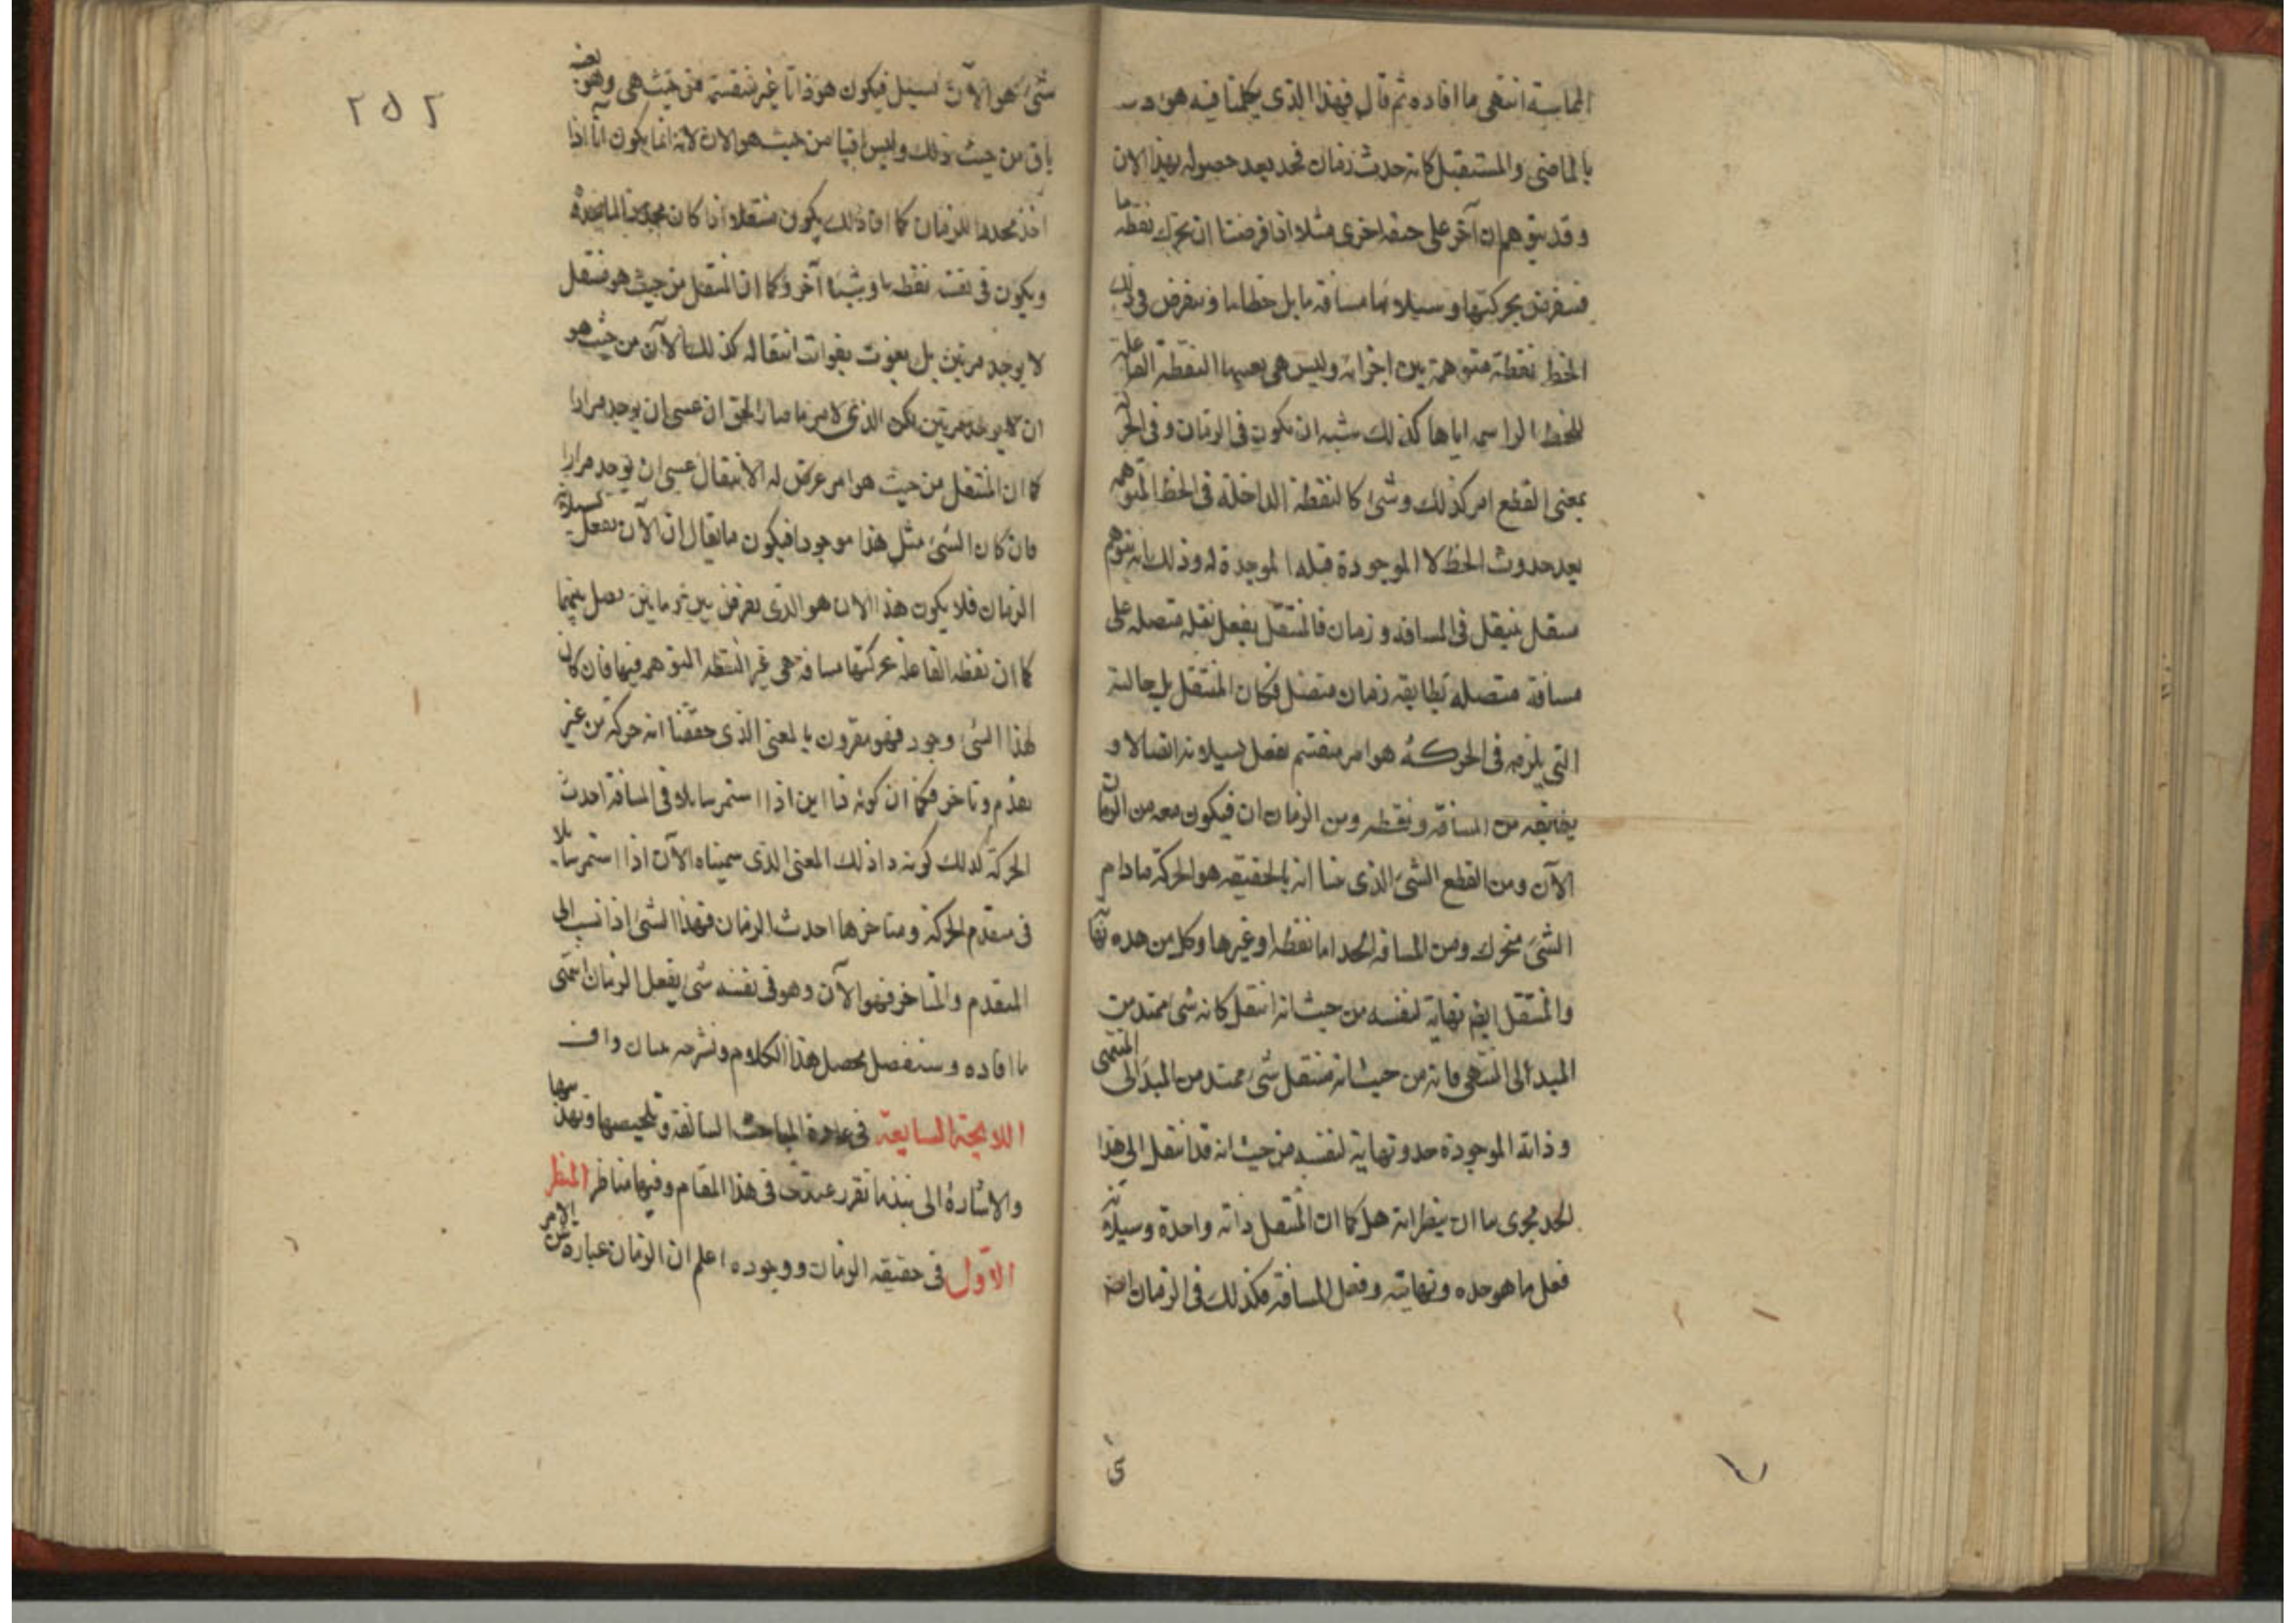 المماسة انتهى ما افاده ثم قال فهذا الذى يكلمنا فيه هو
بالماضى والمستقبل كانه حدث زمان فحد بعد حصوله بهذا الان
وقد يتوهم ان آخر على صفة اخرى مثلا اذا فرضنا ان تحرك نقطة ما
فنفرض بحركتها وسيلانها مسافة ما بل خطا ما ونفرض فى ذلك
الخط نقطة متوهمة بين اجزائه وليس هى بعينها النقطة الفاعلة
للخط الراسمة اياها كذلك يشبه ان يكون فى الزمان وفى الحركة
بمعنى القطع امر كذلك وشئ كالنقطة الداخلة فى الخط المتوهمة
بعد حدوث الخط لا الموجودة قبله الموجدة له وذلك انه يتوهم
منتقل ينتقل فى المسافة وزمان فالمنتقل يفعل نقلة متصلة على
مسافة متصلة يطابقه زمان متصل فكان المنتقل بل حالته
التى يلزمه فى الحركة هو امر منقسم يفعل بسيلانه اتصالا و
يطابقه من المسافة ونقطة ومن الزمان ان فيكون معه من الزمان
الآن ومن القطع الشئ الذى بينا انه بالحقيقة هو الحركة مادام
الشئ متحرك ومن المسافة الحد اما نقطة او غيرها وكل من هذه نهاية
والمنتقل ايضا نهاية لنفسه من حيث انه انتقل كانه شئ ممتد من
المبدأ الى المنتهى فانه من حيث انه منتقل شئ ممتد من المبدأ الى المنتهى
وذاته الموجودة حد ونهاية لنفسه من حيث انه قد انتقل الى هذا
الحد فحرى بنا ان ينظر انه هل كما ان المنتقل ذاته واحدة وسيلانه
فعل ما هو حده ونهايته وفعل المسافة فكذلك فى الزمان ايضا
٢٥٢
شئ هو الآن يسيل فيكون هو ذاتا غير منقسمة من حيث هى وهو بعينه
باق من حيث ذلك وليس باقيا من حيث هو الان لانه انما يكون آنا اذا
اخذ محددا للزمان كما ان ذلك يكون منتقلا اذا كان محددا لما يحدده
ويكون فى نفسه نقطة ما وشيئا آخر وكما ان المنتقل من حيث هو منتقل
لا يوجد مرتين بل يفوت بفوات انتقاله كذلك الآن من حيث هو
ان لا يوجد مرتين لكن الذى لامر ما صار الحق ان عسى ان يوجد مرارا
كما ان المنتقل من حيث هو امر عرض له الانتقال عسى ان يوجد مرارا
فان كان الشئ مثل هذا موجودا فيكون ما يقال ان الآن يفعل بسيلانه
الزمان فلا يكون هذا الان هو الذى يفرض بين زمانين يصل بينهما
كما ان نقطة الفاعلة بحركتها مسافة هى غير النقطة المتوهمة فيها فان كان
لهذا الشئ وجود فهو مقرون بالمعنى الذى حققنا انه حركة من غير
تقدم وتاخر فكما ان كونه ذا اين اذا استمر سايلا فى المسافة احدث
الحركة كذلك كونه ذا ذلك المعنى الذى سميناه الآن اذا استمر سايلا
فى متقدم الحركة ومتاخرها احدث الزمان فهذا الشئ اذا نسب الى
المتقدم والمتاخر فهو الآن وهو فى نفسه شئ يفعل الزمان انتهى
ما افاده وسنفصل محصل هذا الكلام ونشرحه ببيان واف
اللايحة السابعة فى المباحث السالفة وتلخيصها وتهذيبها
والاشارة الى نبذ ما تقرر عندنا فى هذا المقام وفيها مناظر المنظر
الاول فى حقيقة الزمان ووجوده اعلم ان الزمان عبارة عن الامر